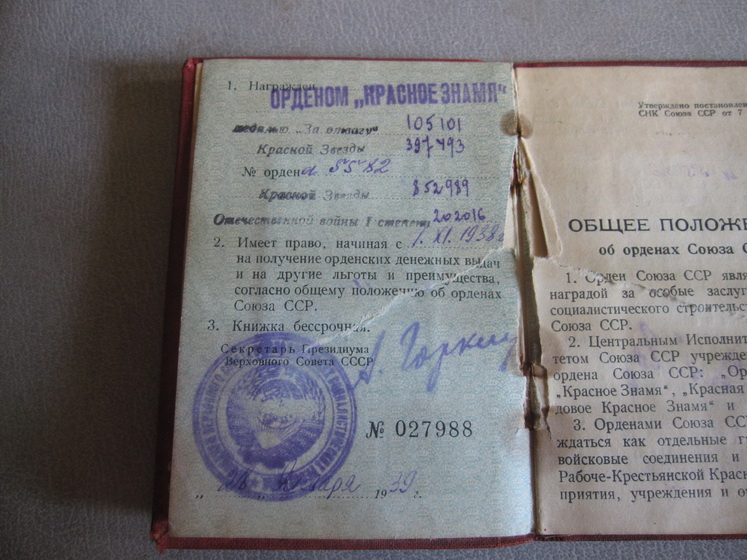 1. Награжден
ОРДЕНОМ „КРАСНОЕ ЗНАМЯ“
медалью „За отвагу“ 105101
Красной Звезды 397493
№ ордена 5582
Красной Звезды 852989
Отечественной войны I степени 202016
2. Имеет право, начиная с 1. XI. 1938 г.
на получение орденских денежных выдач
и на другие льготы и преимущества,
согласно общему положению об орденах
Союза ССР.
3. Книжка бессрочная.
Секретарь Президиума
Верховного Совета СССР
А. Горкин
№ 027988
1939 г.
Утверждено постановлен
СНК Союза ССР от 7
ОБЩЕЕ ПОЛОЖЕ
об орденах Союза С
1. Орден Союза ССР явля
наградой за особые заслуг
социалистического строительс
Союза ССР.
2. Центральным Исполнит
тетом Союза ССР учрежде
ордена Союза ССР: „Ор
„Красное Знамя“, „Красная
довое Красное Знамя“ и
3. Орденами Союза ССР
ждаться как отдельные г
войсковые соединения и
Рабоче-Крестьянской Красн
приятия, учреждения и о